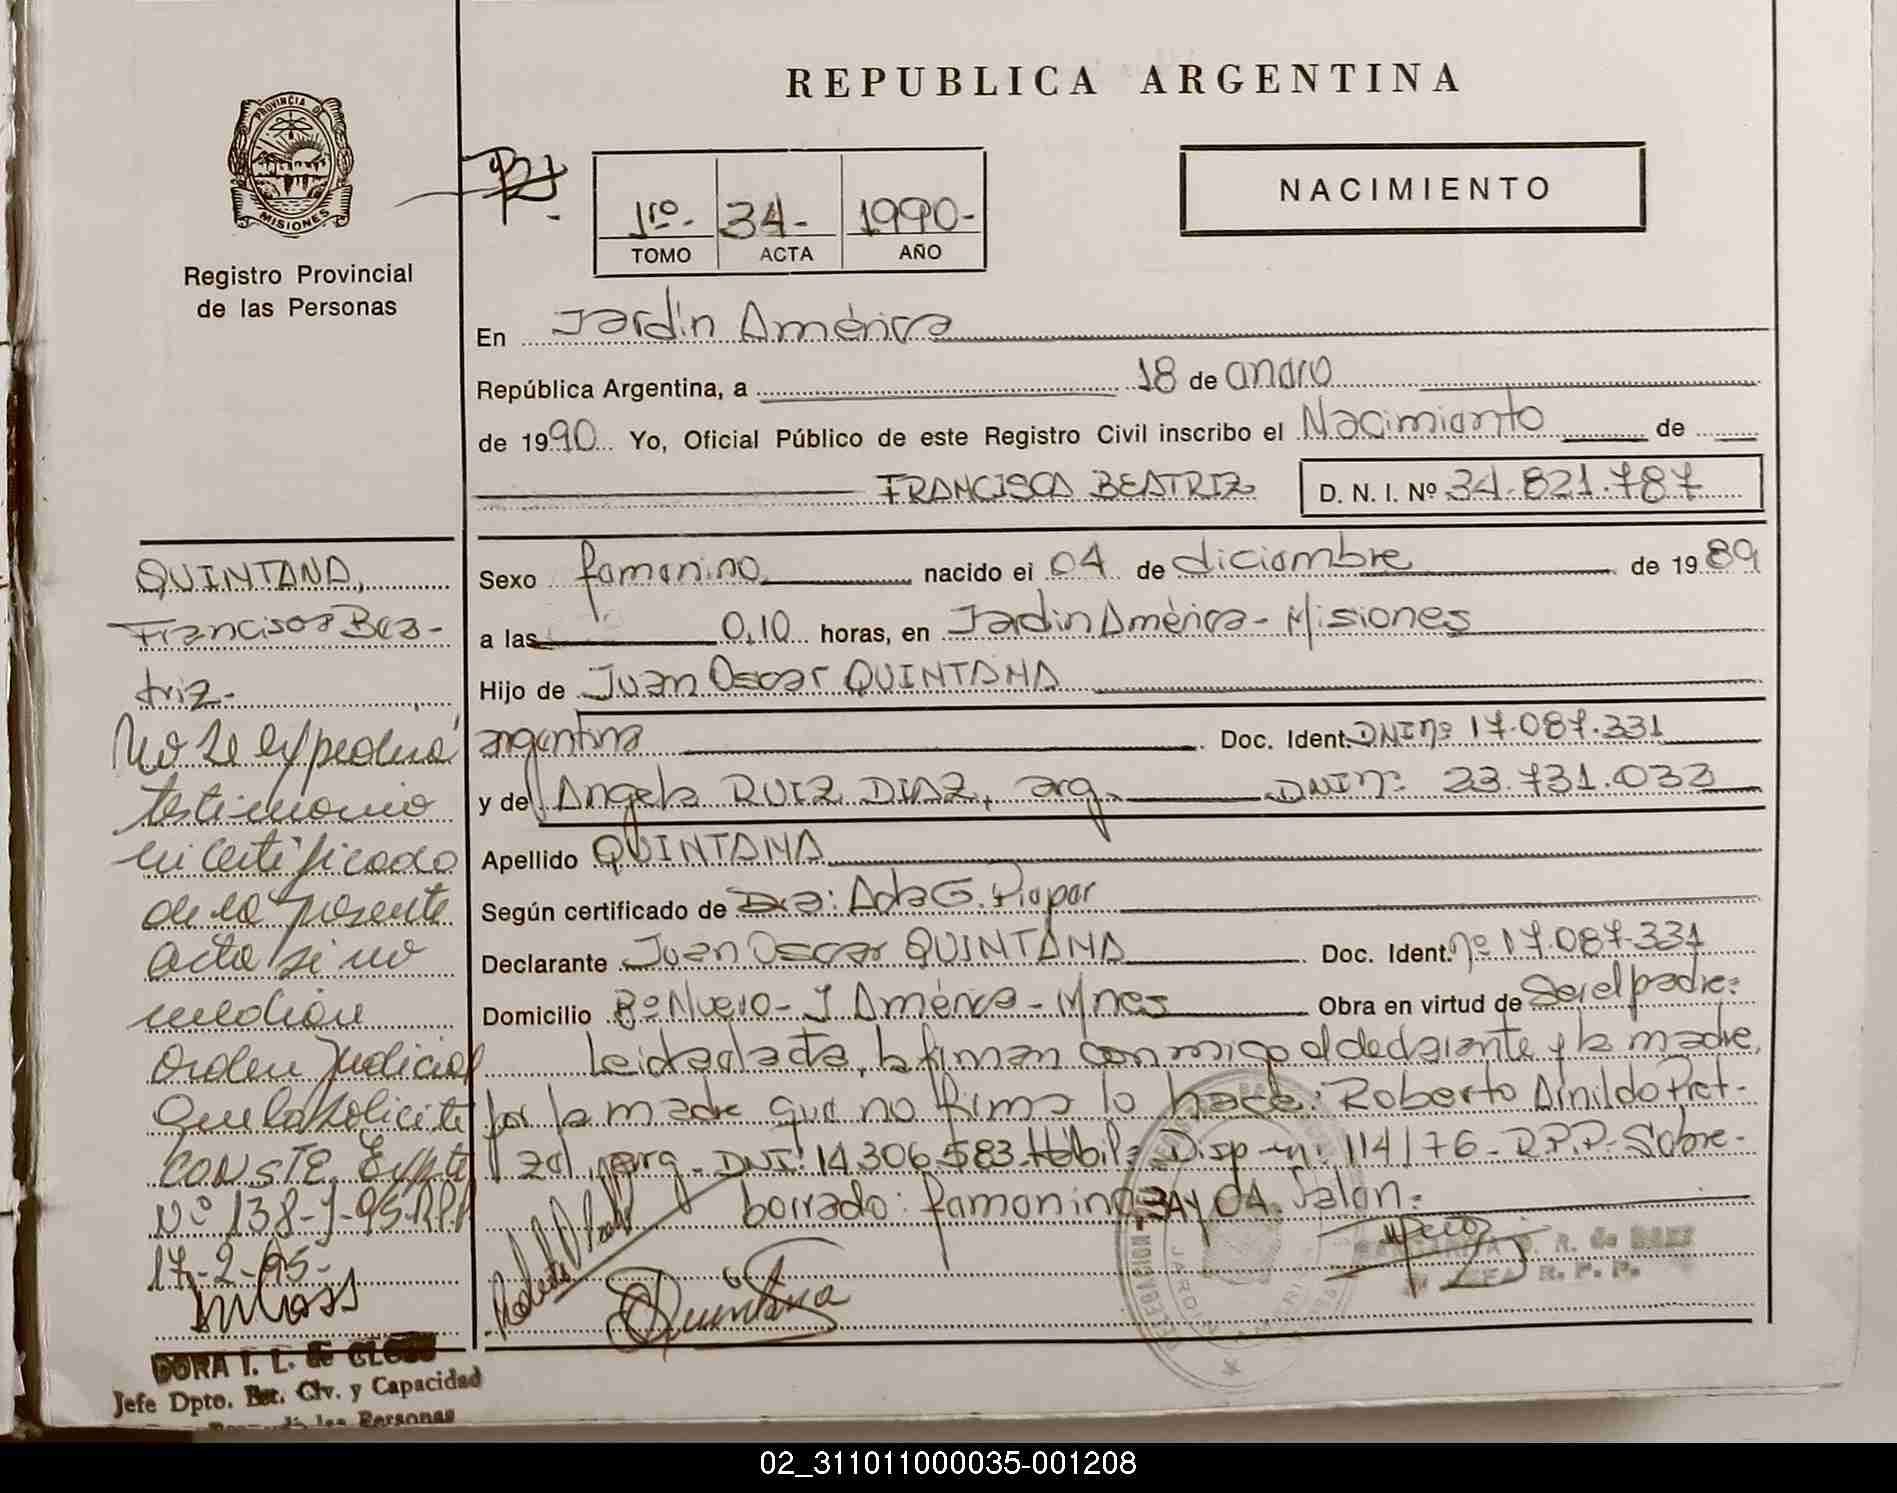 REPUBLICA ARGENTINA
PROVINCIA DE
MISIONES
Registro Provincial
de las Personas
1ro.- 34- 1990-
TOMO ACTA AÑO
NACIMIENTO
En Jardín América
República Argentina, a 18 de enero
de 1990 Yo, Oficial Público de este Registro Civil inscribo el Nacimiento de
FRANCISCA BEATRIZ D. N. I. Nº 34.821.787
Sexo femenino nacido el 04 de diciembre de 1989
a las 0,10 horas, en Jardín América - Misiones
Hijo de Juan Oscar QUINTANA
argentina Doc. Ident. DNI nº 17.087.331
y de Angela RUIZ DIAZ, arg. DNI nº 23.731.032
Apellido QUINTANA
Según certificado de Dra: Ada G.
Declarante Juan Oscar QUINTANA Doc. Ident. nº 17.087.331
Domicilio Bº Nuevo - J. América - Mnes Obra en virtud de Ser el padre:
Leida el acta, la firman conmigo el declarante y la madre,
por la madre que no firma lo hace: Roberto Pret-
zel, arg. DNI: 14.306.583. Hábil: Disp. nº 114/76 - R.P.P. Sobre-
borrado: femenino, 34 y 04. Valen:
QUINTANA,
Francisca Bea-
triz.-
No se expedirá
testimonio
ni certificado
de la presente
acta si no
median
orden judicial
que la solicite
CONSTE. Expte
Nº 138-J-95-RPP
17-2-95-
Quintana
R. de
JEFA R. P. P.
DORA I. L. de
Jefe Dpto. Est. Civ. y Capacidad
de las Personas
02_311011000035-001208